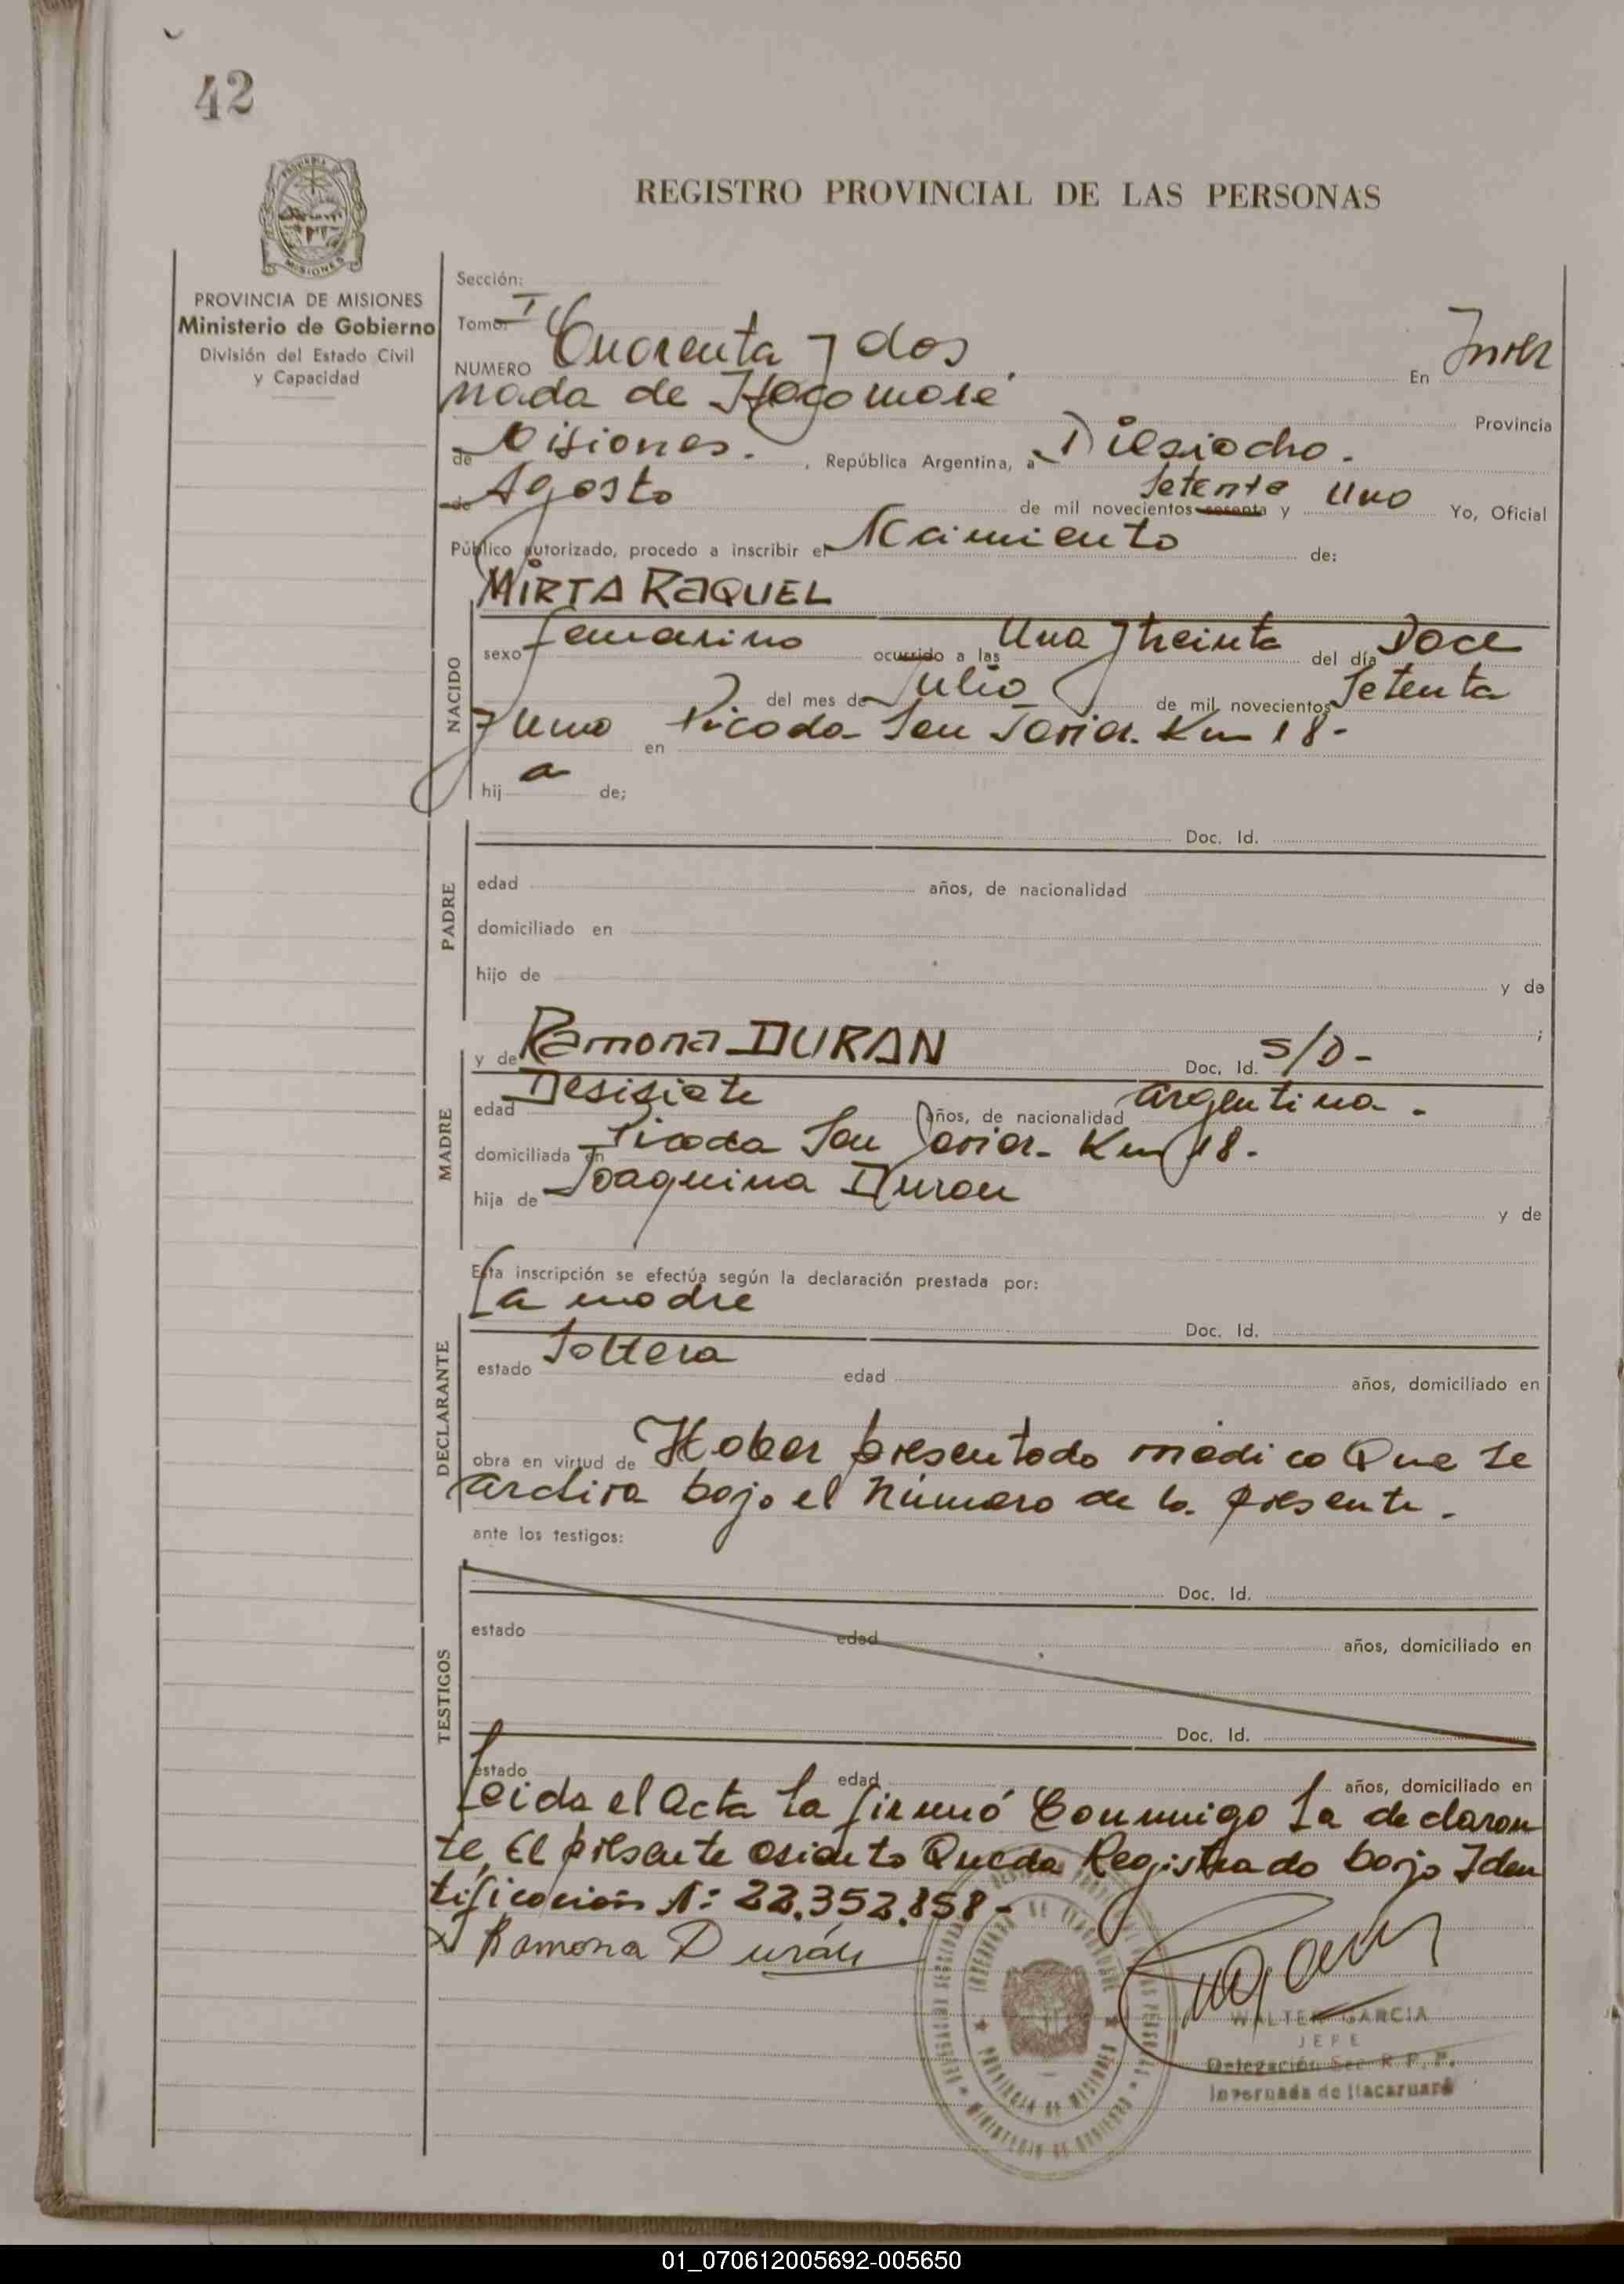 42
REGISTRO PROVINCIAL DE LAS PERSONAS
PROVINCIA DE MISIONES
Ministerio de Gobierno
División del Estado Civil
y Capacidad
Sección:
Tomo: I
NUMERO Cuarenta y dos. En Inver
nada de Itacaruaré Provincia
de Misiones. , República Argentina, a Diesiocho.
de Agosto de mil novecientos sesenta y setenta uno Yo, Oficial
Público autorizado, procedo a inscribir el Nacimiento de:
MIRTA RAQUEL
NACIDO
sexo femenino ocurrido a las Una y treinta del día Doce
del mes de Julio de mil novecientos Setenta
y uno en Picada San Javier. Km 18-
hij a de;
PADRE
Doc. Id.
edad años, de nacionalidad
domiciliado en
hijo de y de
;
MADRE
y de Ramona DURAN Doc. Id. S/D-
edad Desisiete años, de nacionalidad argentina.
domiciliada en Picada San Javier- Km 18-
hija de Joaquina Duran y de
Esta inscripción se efectúa según la declaración prestada por:
DECLARANTE
La madre Doc. Id.
estado Soltera edad años, domiciliado en
obra en virtud de Haber presentado médico Que se
archiva bajo el número de la presente.
ante los testigos:
TESTIGOS
Doc. Id.
estado edad años, domiciliado en
Doc. Id.
estado edad años, domiciliado en
Leida el Acta la firmó Conmigo La declaran
te, El presente asiento Queda Registrado bajo Iden
tificación N: 22.352.858-
x Ramona Durán
PROVINCIA DE MISIONES
WALTER GARCIA
JEFE
Delegación Sec. R. P. P.
Invernada de Itacaruaré
01_070612005692-005650